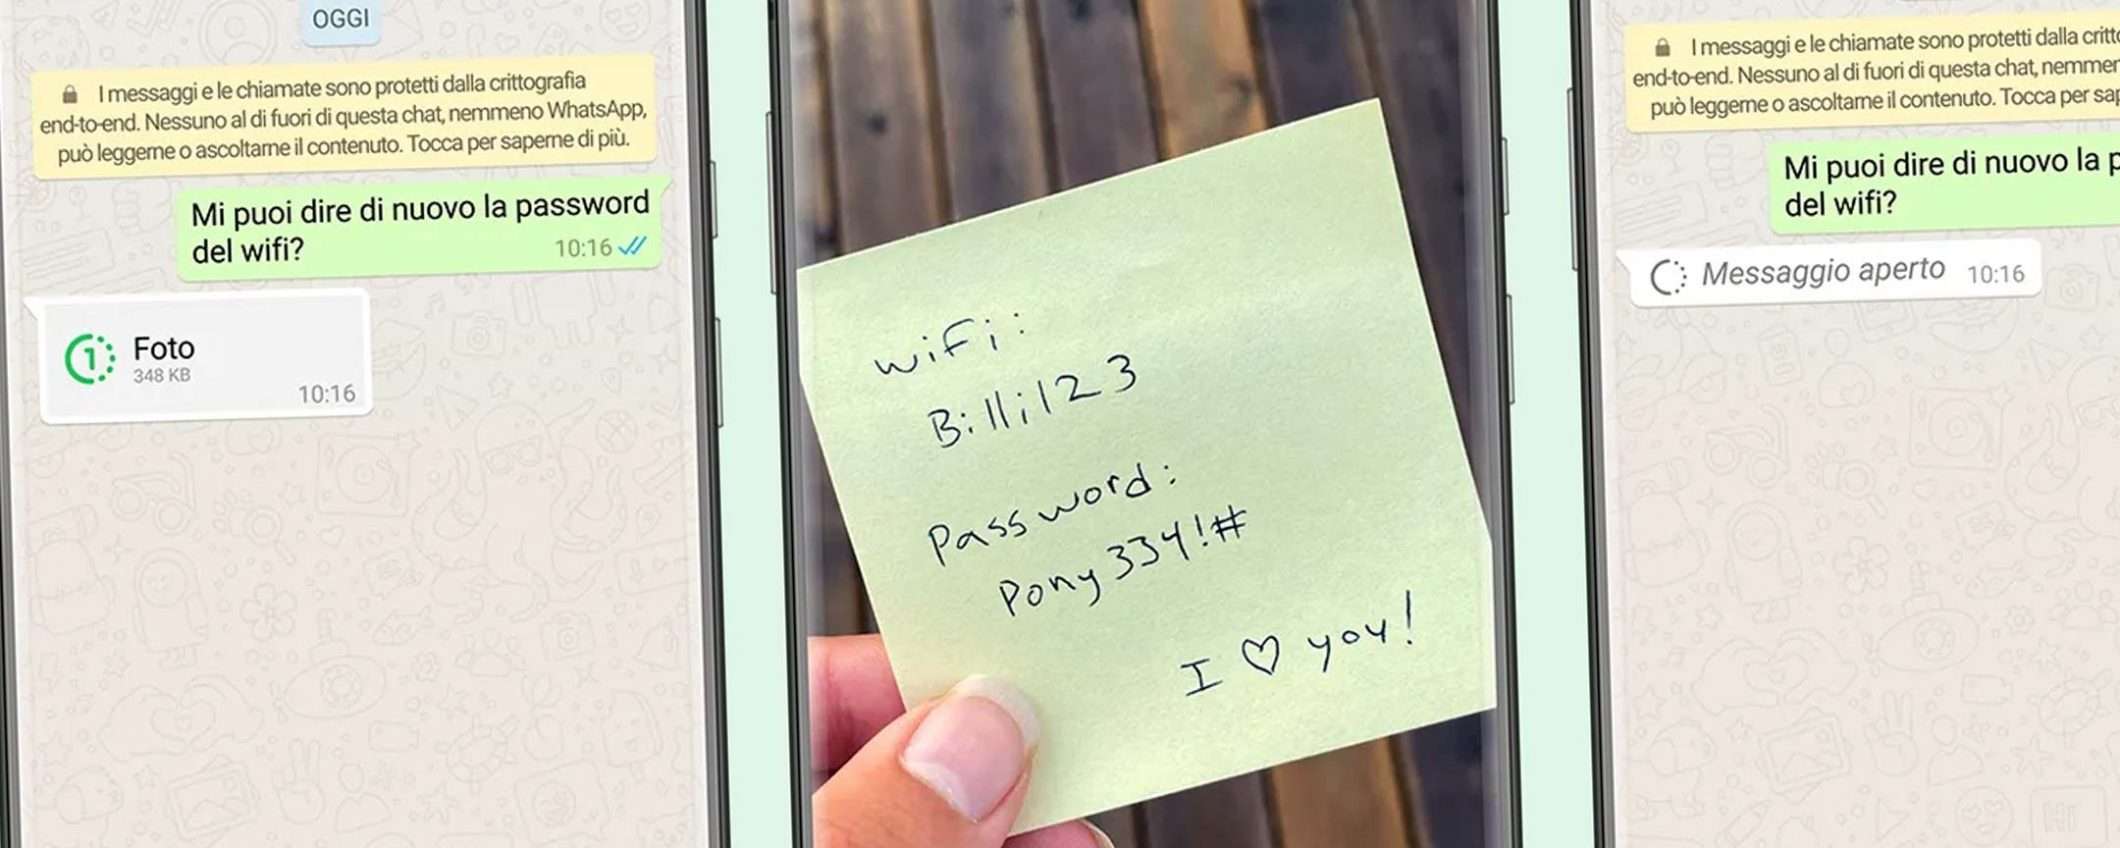 OGGI
I messaggi e le chiamate sono protetti dalla crittografia
end-to-end. Nessuno al di fuori di questa chat, nemmeno WhatsApp,
può leggerne o ascoltarne il contenuto. Tocca per saperne di più.
Mi puoi dire di nuovo la password
del wifi?
10:16
1
Foto
348 KB
10:16
wifi:
Billi123
Password:
Pony334!#
I ♡ you!
I messaggi e le chiamate sono protetti dalla critto
end-to-end. Nessuno al di fuori di questa chat, nemmen
può leggerne o ascoltarne il contenuto. Tocca per sap
Mi puoi dire di nuovo la p
del wifi?
Messaggio aperto 10:16